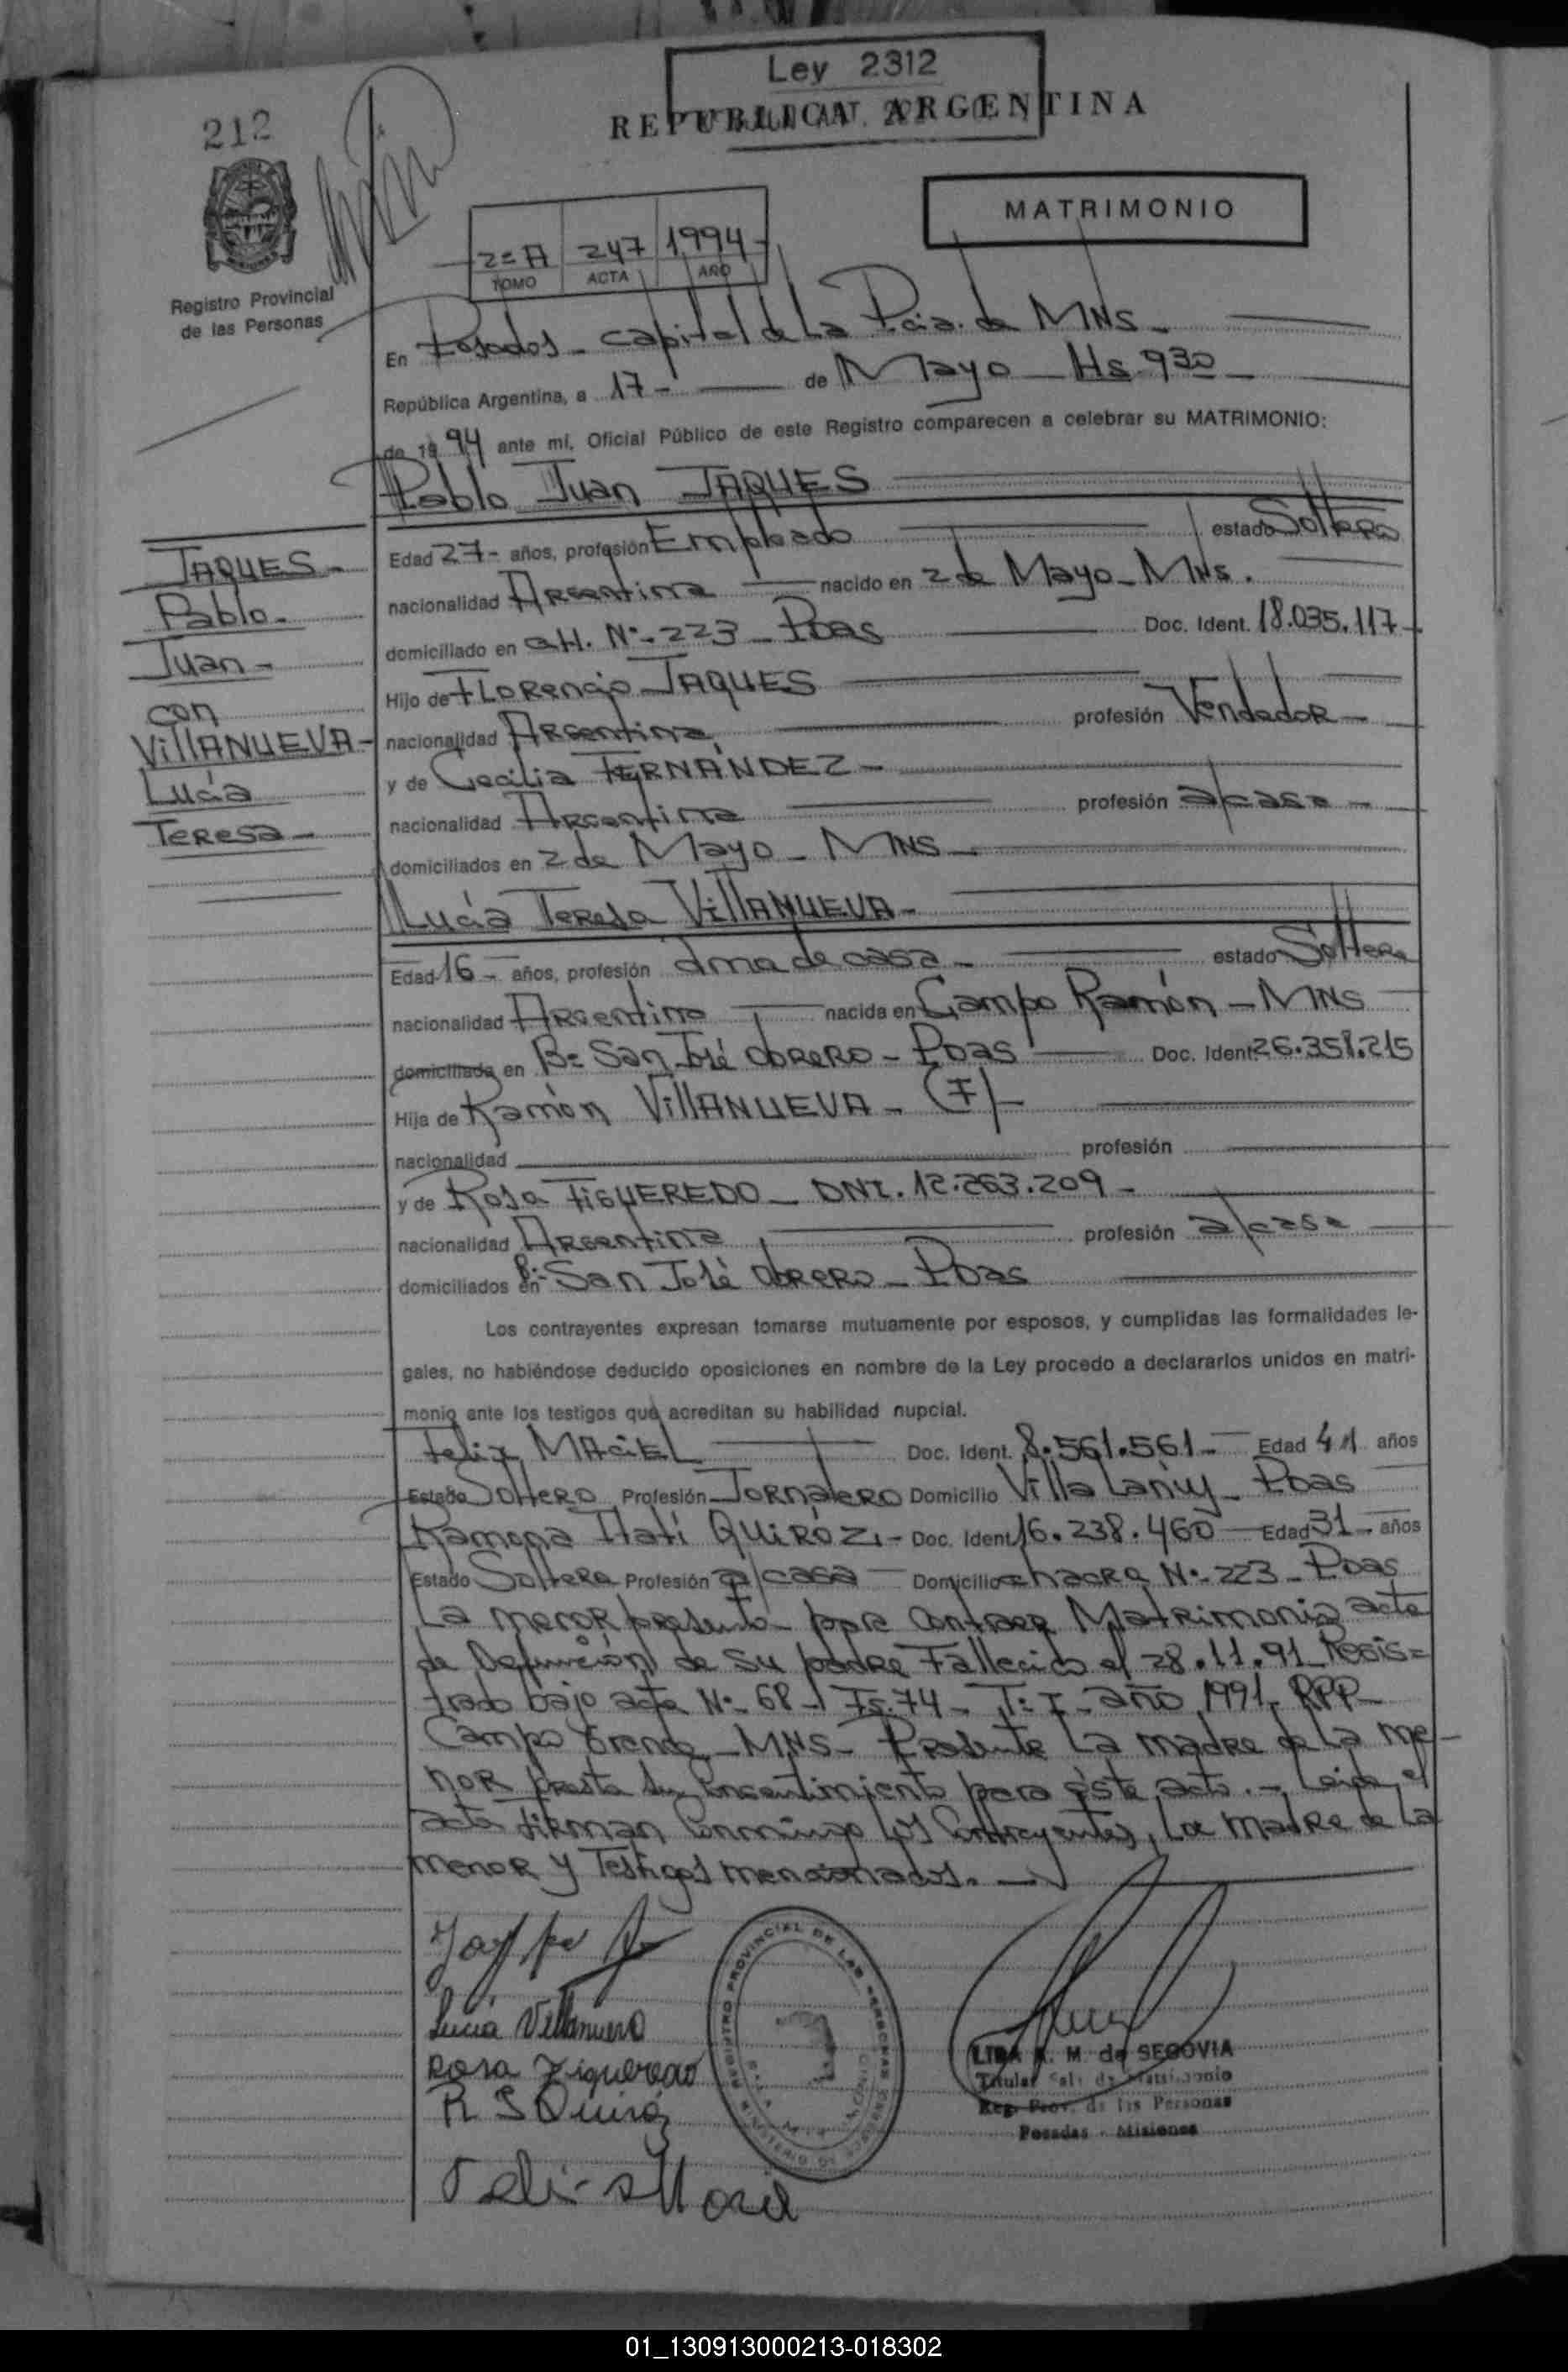 Ley 2312
REPUBLICA ARGENTINA
212
MATRIMONIO
2º A 247 1994
TOMO ACTA AÑO
Registro Provincial
de las Personas
En Posadas - Capital de La Pcia. de MNS -
República Argentina, a 17 - de Mayo - Hs. 930 -
de 19 94 ante mí, Oficial Público de este Registro comparecen a celebrar su MATRIMONIO:
Pablo Juan JAQUES
JAQUES -
Pablo -
Juan -
con
VILLANUEVA -
Lucía
Teresa -
Edad 27 - años, profesión Empleado estado Soltero
nacionalidad Argentina nacido en 2 de Mayo - MNS.
domiciliado en CH. Nº - 223 - Pdas Doc. Ident. 18.035.117 -
Hijo de Florencio JAQUES
nacionalidad Argentina profesión Vendedor -
y de Cecilia FERNÁNDEZ -
nacionalidad Argentina profesión a/casa -
domiciliados en 2 de Mayo - MNS -
Lucía Teresa VILLANUEVA -
Edad 16 - años, profesión ama de casa - estado Soltera
nacionalidad Argentina nacida en Campo Ramón - MNS
domiciliada en Bº San José Obrero - Pdas Doc. Ident. 26.358.215
Hija de Ramón VILLANUEVA - (F) -
nacionalidad profesión
y de Rosa FIGUEREDO - DNI. 12.263.209 -
nacionalidad Argentina profesión a/casa
domiciliados en Bº San José Obrero - Pdas
Los contrayentes expresan tomarse mutuamente por esposos, y cumplidas las formalidades le-
gales, no habiéndose deducido oposiciones en nombre de la Ley procedo a declararlos unidos en matri-
monio ante los testigos que acreditan su habilidad nupcial.
Felix MACIEL Doc. Ident. 8.561.561 - Edad 41 años
Estado Soltero Profesión Jornalero Domicilio Villa Lanús - Pdas
Ramona Itatí QUIRÓZ - Doc. Ident. 16.238.460 Edad 31 - años
Estado Soltera Profesión a/casa Domicilio chacra Nº - 223 - Pdas
La menor presenta para contraer Matrimonio acta
de Defunción de su padre Fallecido el 28.11.91 Regis=
trado bajo acta Nº - 68 - Fs. 74 - Tº I - año 1991 - RPP -
Campo Grande - MNS - Presente La madre de La me-
nor presta su consentimiento para éste acto. - Leida el
acta Firman Conmigo los Contrayentes, La madre de La
menor y Testigos mencionados. -
Lucia Villanueva
Rosa Figueredo
R I Quiroz
Felix Maciel
REGISTRO PROVINCIAL DE LAS PERSONAS
M. de SEGOVIA
Titular
Reg. Prov. de las Personas
Posadas - Misiones
01_130913000213-018302